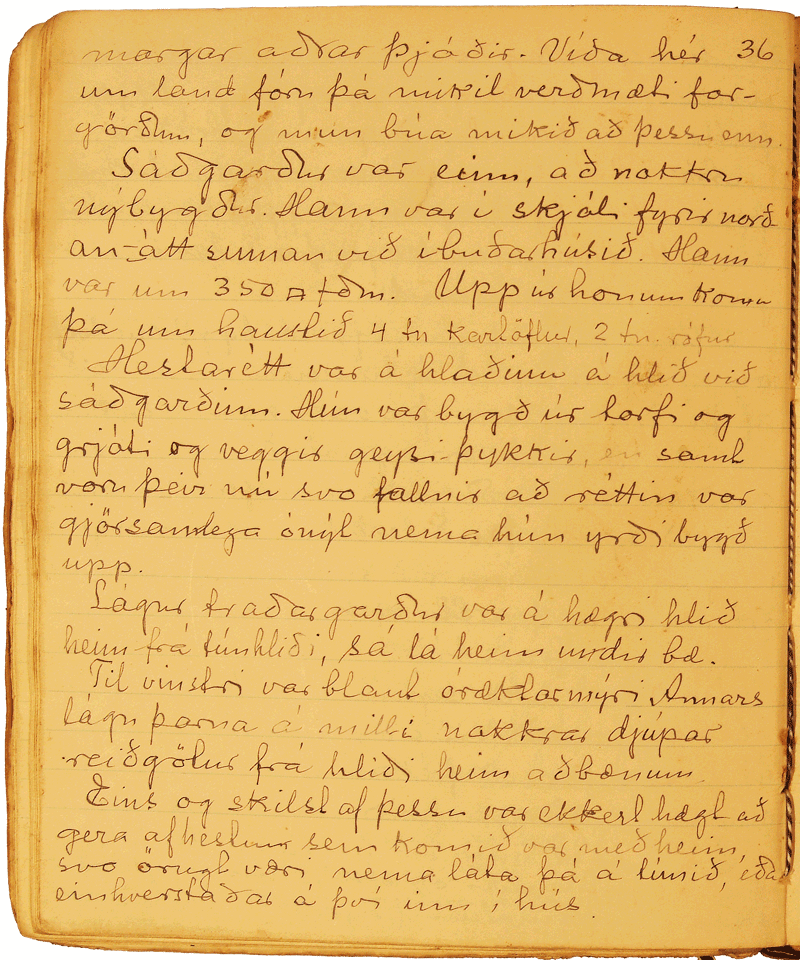 margar aðrar þjóðir. Víða hér 36
um land fóru þá mikil verðmæti for-
görðum, og mun búa mikið að þessu enn.
Sáðgarður var einn, að nokkru
nýbygður. Hann var í skjóli fyrir norð-
an-átt sunnan við íbúðarhúsið. Hann
var um 350 □ fðm. Upp úr honum komu
þá um haustið 4 tn kartöflur, 2 tn. rófur
Hestarétt var á hlaðinu á hlið við
sáðgarðinn. Hún var bygð úr torfi og
grjóti og veggir geysi-þykkir, en samt
voru þeir nú svo fallnir að réttin var
gjörsamlega ónýt nema hún yrði bygð
upp.
Lágur traðargarður var á hægri hlið
heim frá túnhliði, sá lá heim undir bæ.
Til vinstri var blaut óræktarmýri Annars
lágu þarna á milli nokkrar djúpar
reiðgötur frá hliði heim að bænum.
Eins og skilst af þessu var ekkert hægt að
gera af hestum sem komið var með heim,
svo örugt væri nema láta þá á túnið, eða
einhverstaðar á því inn í hús.